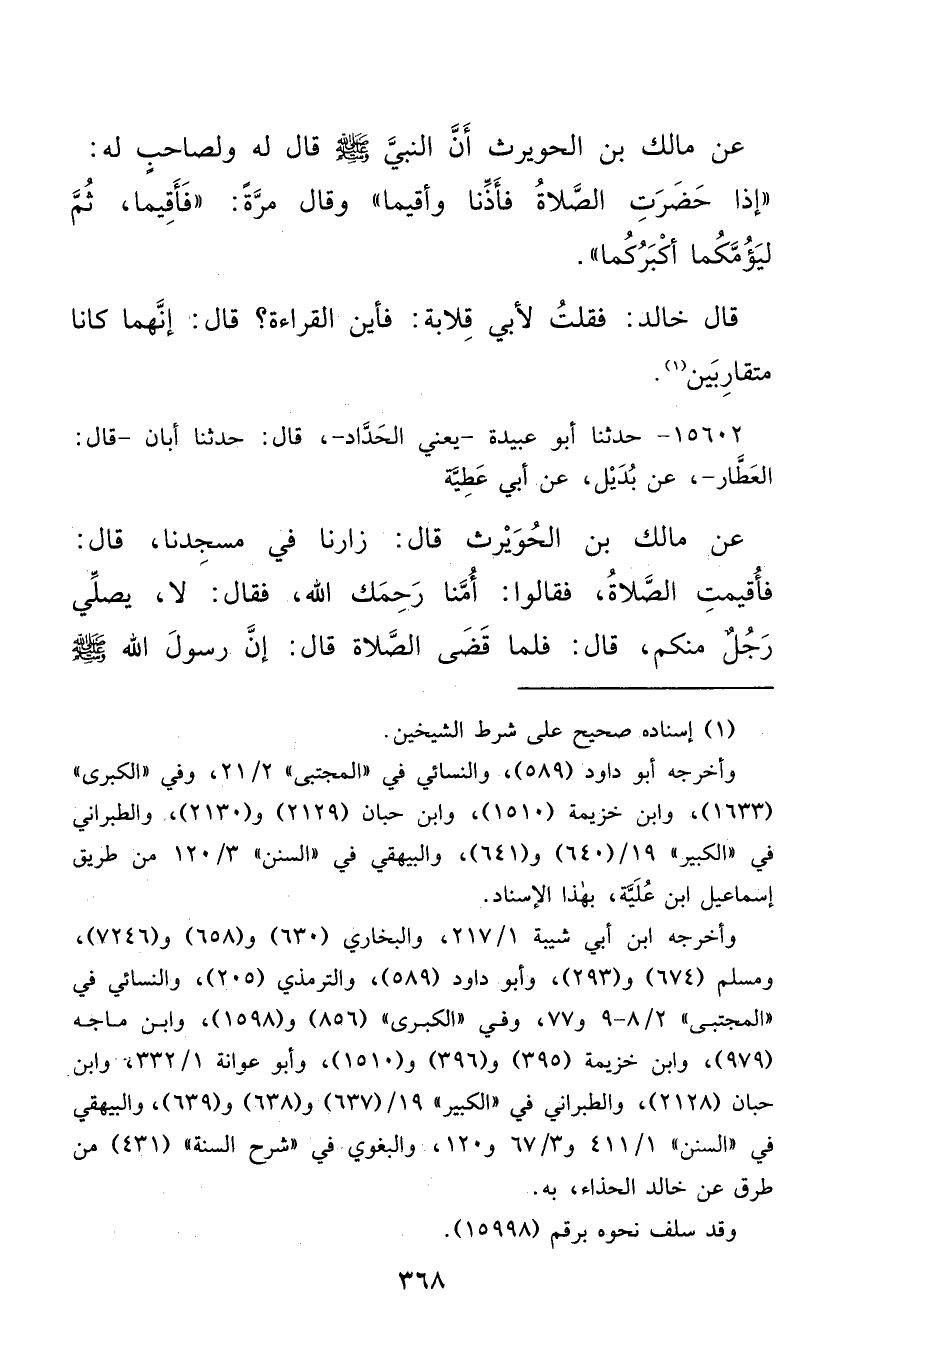 عن مالك بن الحويرث أَنَّ النبيَّ ﷺ قال له ولصاحبٍ له:
«إذا حَضَرَتِ الصَّلاةُ فأَذِّنا وأقيما» وقال مرَّةً: «فَأَقِيما، ثُمَّ
ليَؤُمَّكُما أكْبَرُكُما».
قال خالد: فقلتُ لأبي قِلابة: فأين القراءة؟ قال: إنَّهما كانا
متقارِبَين(١).
١٥٦٠٢- حدثنا أبو عبيدة -يعني الحَدَّاد-، قال: حدثنا أبان -قال:
العَطَّار-، عن بُدَيْل، عن أبي عَطِيَّة
عن مالك بن الحُوَيْرث قال: زارنا في مسجِدنا، قال:
فأُقيمتِ الصَّلاةُ، فقالوا: أُمَّنا رَحِمَك الله، فقال: لا، يصلِّي
رَجُلٌ منكم، قال: فلما قَضَى الصَّلاة قال: إنَّ رسولَ الله ﷺ
(١) إسناده صحيح على شرط الشيخين.
وأخرجه أبو داود (٥٨٩)، والنسائي في «المجتبى» ٢١/٢، وفي «الكبرى»
(١٦٣٣)، وابن خزيمة (١٥١٠)، وابن حبان (٢١٢٩) و(٢١٣٠)، والطبراني
في «الكبير» ١٩/(٦٤٠) و(٦٤١)، والبيهقي في «السنن» ١٢٠/٣ من طريق
إسماعيل ابن عُلَيَّة، بهٰذا الإسناد.
وأخرجه ابن أبي شيبة ٢١٧/١، والبخاري (٦٣٠) و(٦٥٨) و(٧٢٤٦)،
ومسلم (٦٧٤) و(٢٩٣)، وأبو داود (٥٨٩)، والترمذي (٢٠٥)، والنسائي في
«المجتبى» ٨/٢-٩ و٧٧، وفي «الكبرى» (٨٥٦) و(١٥٩٨)، وابن ماجه
(٩٧٩)، وابن خزيمة (٣٩٥) و(٣٩٦) و(١٥١٠)، وأبو عوانة ٣٣٢/١، وابن
حبان (٢١٢٨)، والطبراني في «الكبير» ١٩/(٦٣٧) و(٦٣٨) و(٦٣٩)، والبيهقي
في «السنن» ٤١١/١ و٦٧/٣ و١٢٠، والبغوي في «شرح السنة» (٤٣١) من
طرق عن خالد الحذاء، به.
وقد سلف نحوه برقم (١٥٩٩٨).
٣٦٨